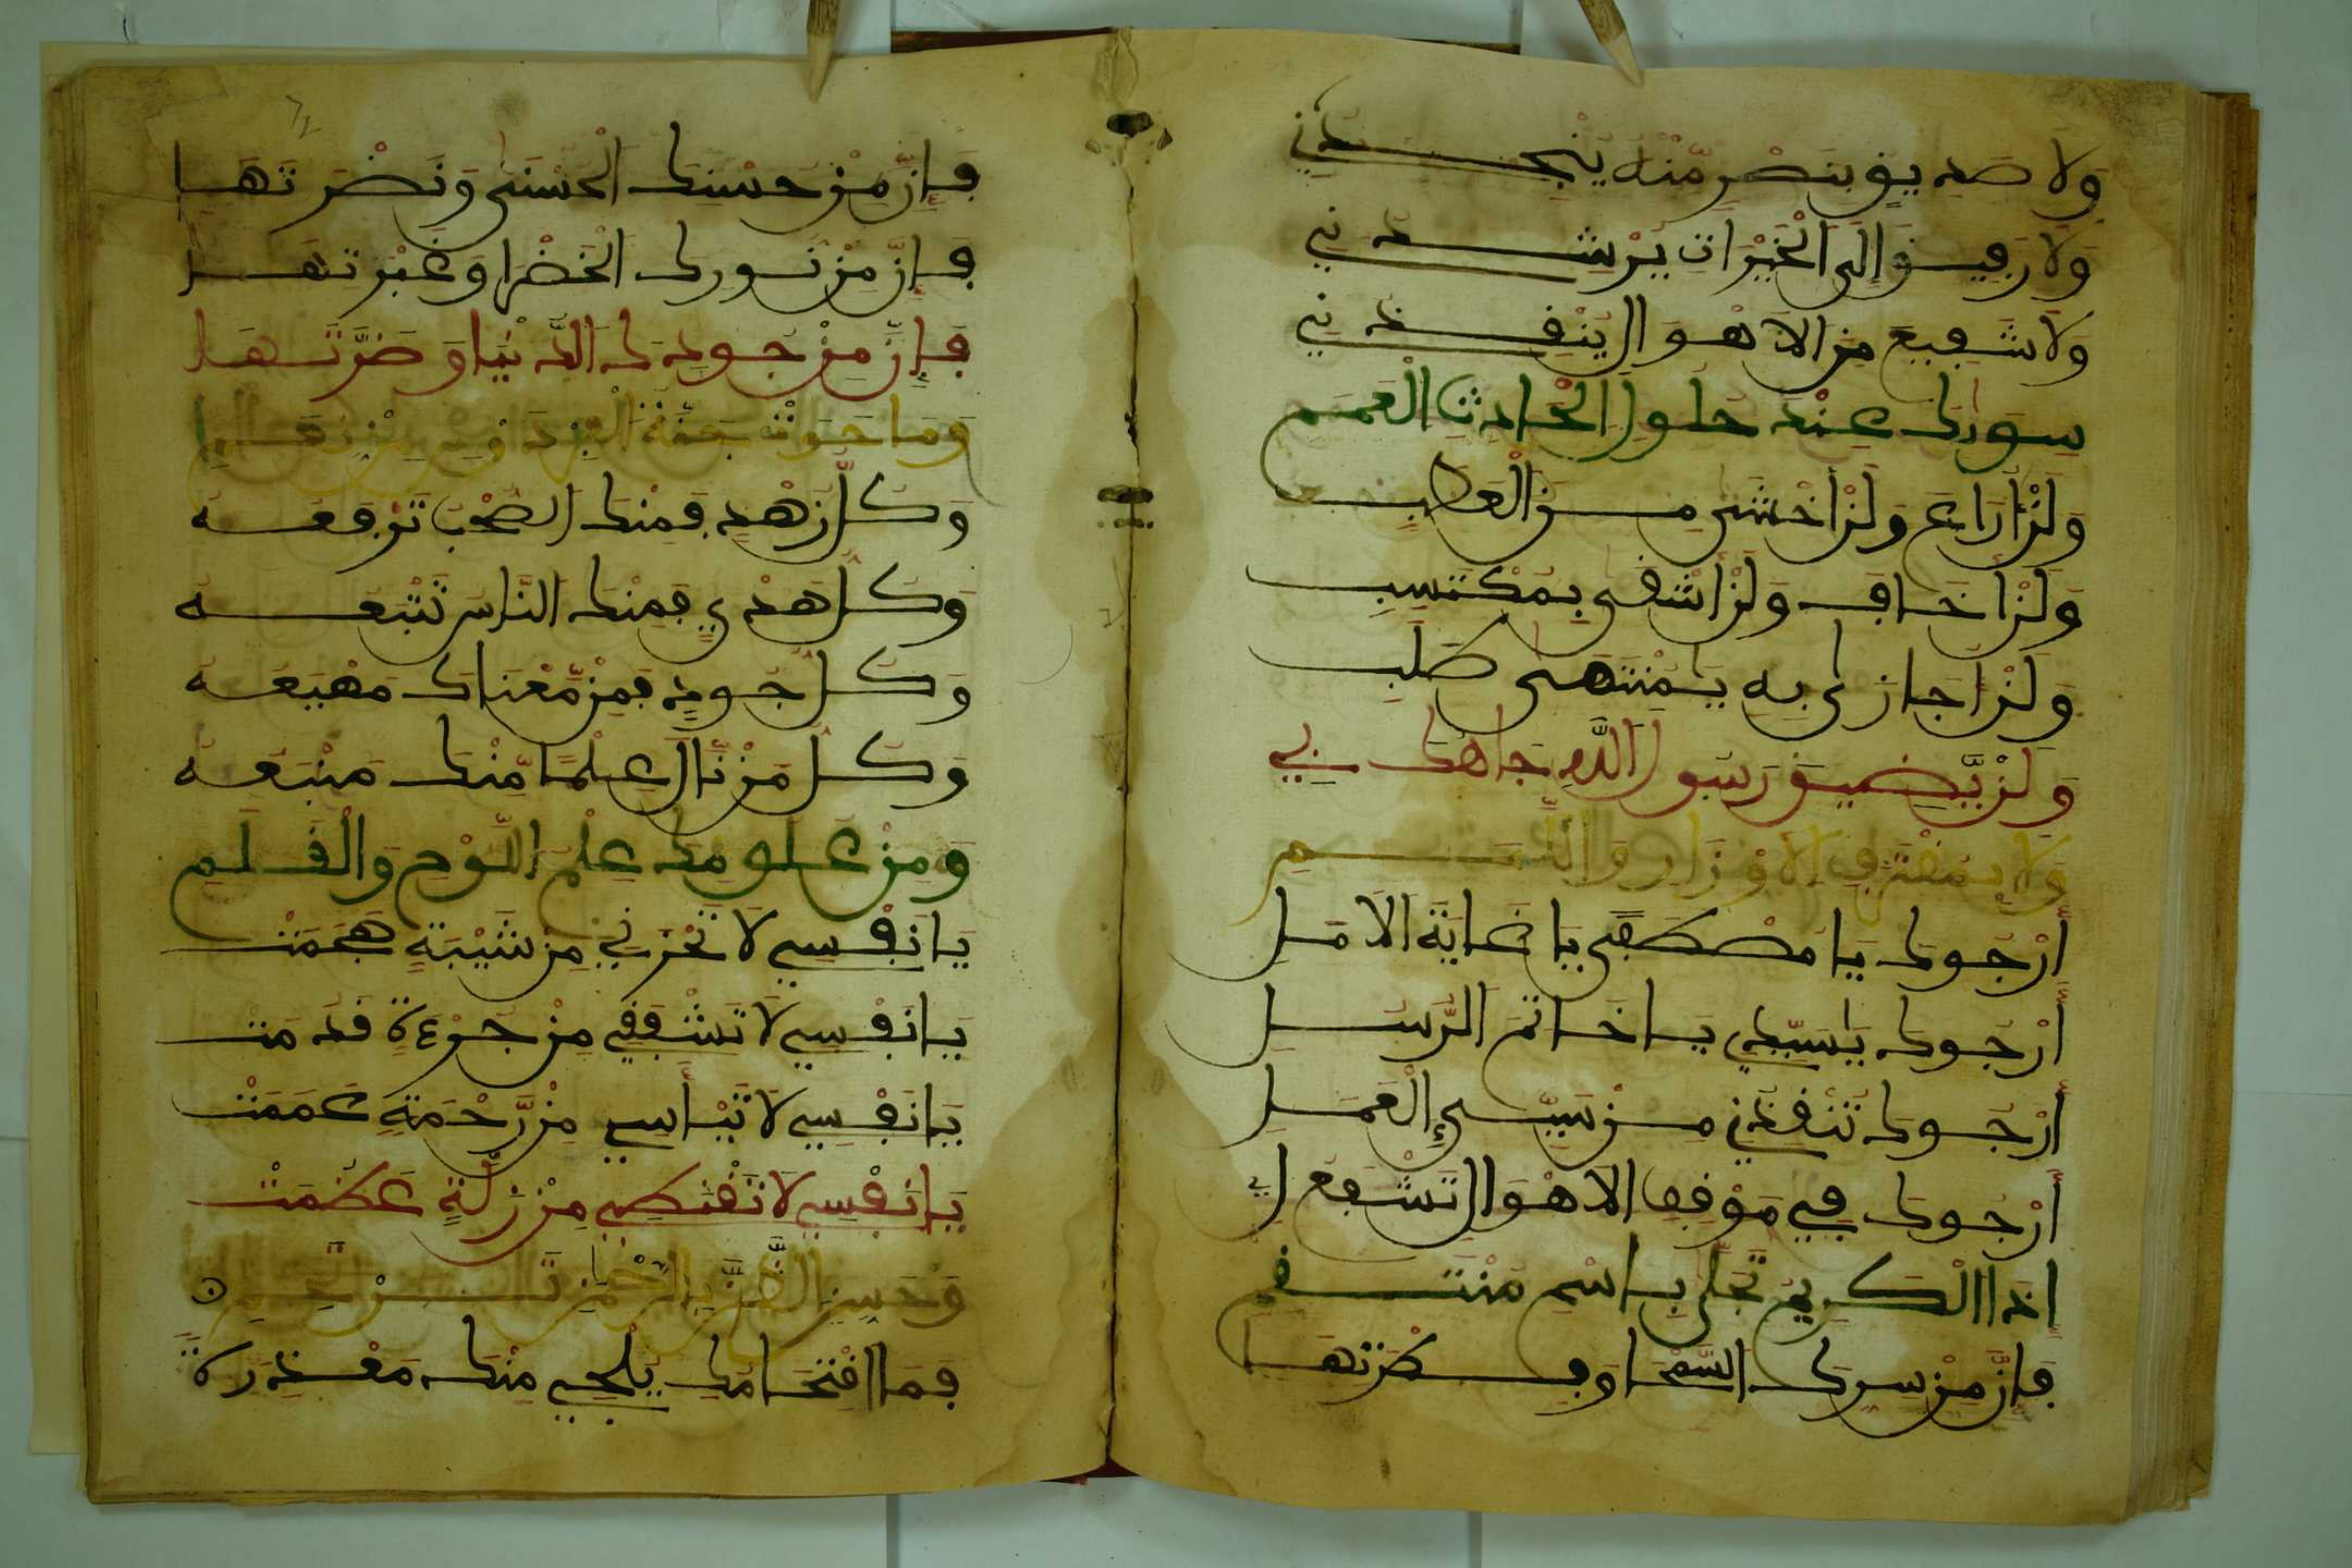 وَلَا صَدِيقٍ بِنَصْرٍ مِّنْهُ يُنْجِدُنِي
وَلَا رَفِيقٍ إِلَى الْخَيْرَاتِ يُرْشِدُنِي
وَلَا شَفِيعٍ مِنَ الْأَهْوَالِ يُنْقِذُنِي
سِوَاكَ عِنْدَ حُلُولِ الْحَادِثِ الْعَمِمِ
وَلَنْ أُرَاعَ وَلَنْ أَخْشَى مِنَ الْعَطَبِ
وَلَنْ أَخَافَ وَلَنْ أَشْقَى بِمُكْتَسَبِ
وَلَنْ أُجَازَى بِهِ يَا مُنْتَهَى طَلَبِ
وَلَنْ يَّضِيقَ رَسُولَ اللَّهِ جَاهُكَ بِي
أَرْجُوكَ يَا مُصْطَفَى يَا غَايَةَ الْأَمَلِ
أَرْجُوكَ يَا سَيِّدِي يَا خَاتَمَ الرُّسُلِ
أَرْجُوكَ تُنْقِذُنِي مِنْ سَيِّئِ الْعَمَلِ
أَرْجُوكَ فِي مَوْقِفِ الْأَهْوَالِ تَشْفَعُ لِي
إِذَا الْكَرِيمُ تَجَلَّى بِاسْمِ مُنْتَقِمِ
فَإِنَّ مِنْ سِرِّكَ السَّمْحَا وَفِطْرَتَهَا
فَإِنَّ مِنْ حُسْنِكَ الْحُسْنَى وَنَضْرَتَهَا
فَإِنَّ مِنْ نُورِكَ الْخَضْرَا وَغَبْرَتَهَا
فَإِنَّ مِنْ جُودِكَ الدُّنْيَا وَضَرَّتَهَا
وَكُلُّ زُهْدٍ فَمِنْكَ الصَّحْبُ تَرْفَعُهُ
وَكُلُّ هَدْيٍ فَمِنْكَ النَّاسُ تَتْبَعُهُ
وَكُلُّ جُودٍ فَمِنْ مَّعْنَاكَ مَهْيَعُهُ
وَكُلُّ مَنْ نَّالَ عِلْمًا مِّنْكَ مَنْبَعُهُ
وَمِنْ عُلُومِكَ عِلْمُ اللَّوْحِ وَالْقَلَمِ
يَا نَفْسِي لَا تَحْزَنِي مِنْ شَيْبَةٍ هَجَمَتْ
يَا نَفْسِي لَا تُشْفِقِي مِنْ جَرْءَةٍ قَدُمَتْ
يَا نَفْسِي لَا تَيْأَسِي مِنْ رَّحْمَةٍ عَمَمَتْ
يَا نَفْسِي لَا تَقْنَطِي مِنْ زَلَّةٍ عَظُمَتْ
فَمَا اقْتِحَامُكِ يُلْجِي مِنْكِ مَعْذِرَةً